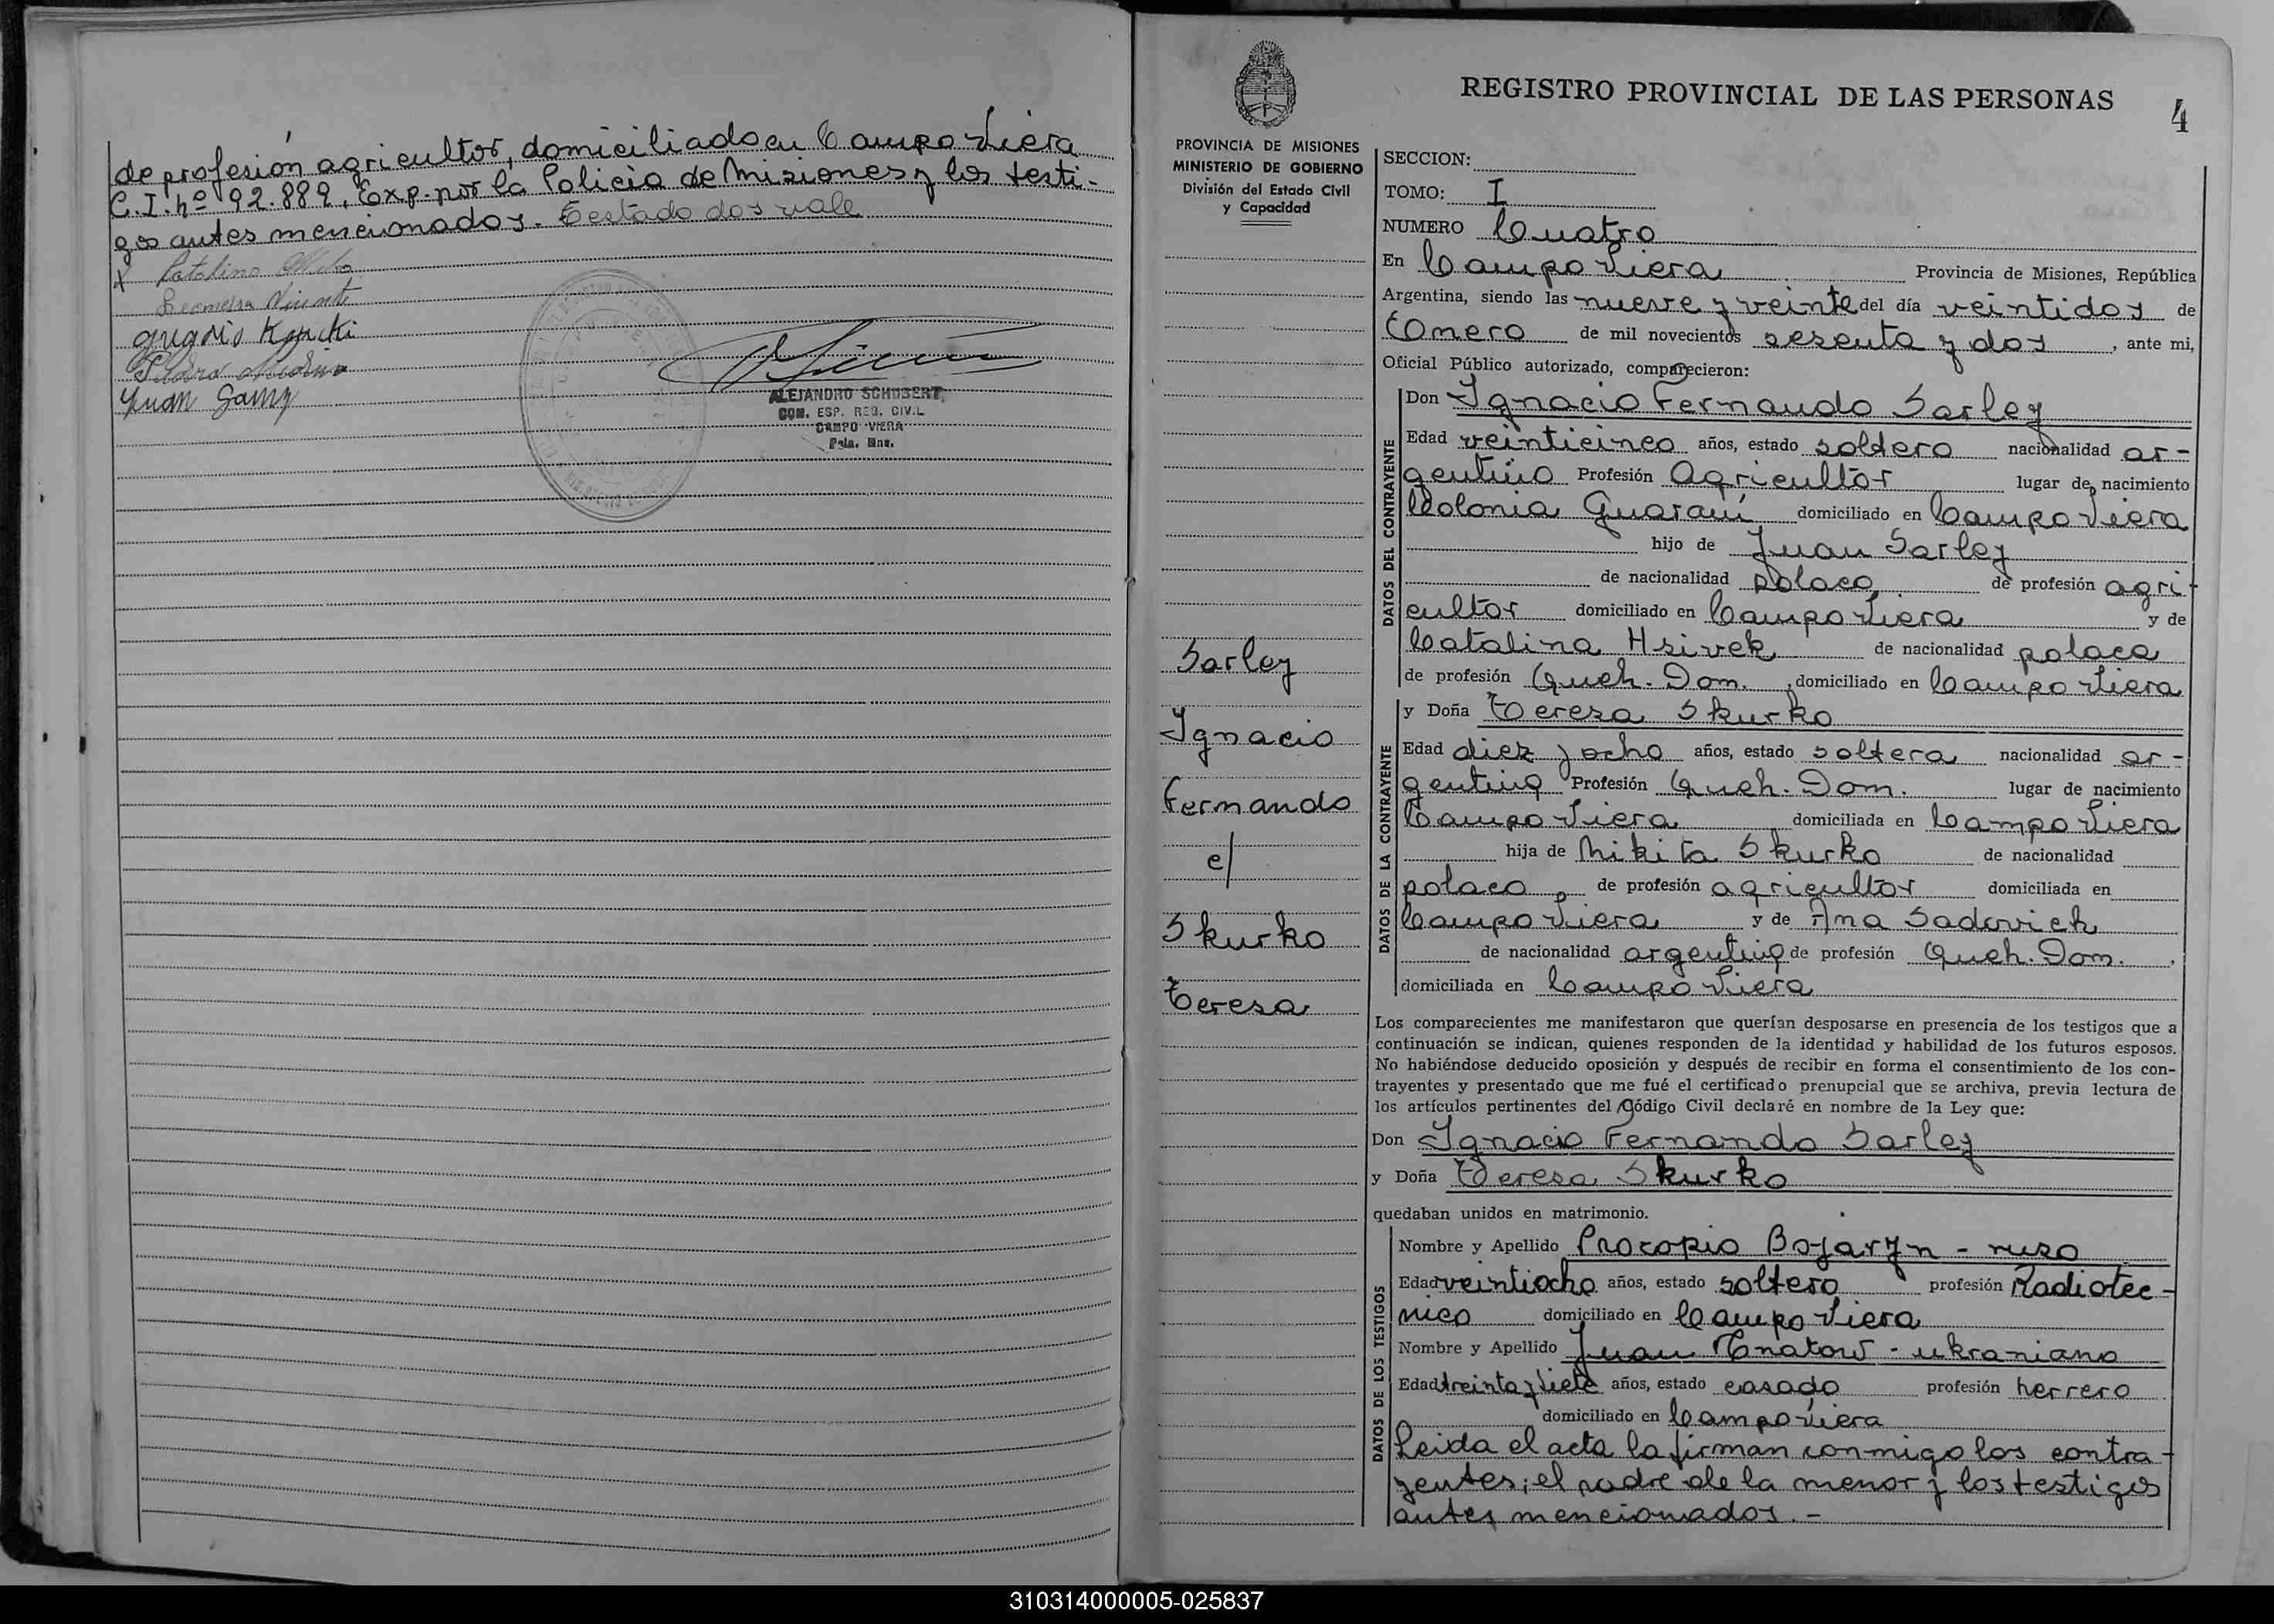 de profesión agricultor, domiciliado en Campo Viera
C.I. nº 92.889, Exp. por la Policia de Misiones y los testi-
gos antes mencionados. Testado dos vale
x Catalina
gregorio
Pedro
Juan
ALEJANDRO SCHUBERT
COM. ESP. REG. CIVIL
CAMPO VIERA
Pcia. Mns.
REGISTRO PROVINCIAL DE LAS PERSONAS
4
PROVINCIA DE MISIONES
MINISTERIO DE GOBIERNO
División del Estado Civil
y Capacidad
SECCION:
TOMO: I
NUMERO Cuatro
En Campo Viera Provincia de Misiones, República
Argentina, siendo las nueve y veinte del día veintidos de
Enero de mil novecientos sesenta y dos, ante mi,
Oficial Público autorizado, comparecieron:
DATOS DEL CONTRAYENTE
Don Ignacio Fernando Sarley
Edad veinticinco años, estado soltero nacionalidad ar-
gentino Profesión Agricultor lugar de nacimiento
Colonia Guaraní domiciliado en Campo Viera
hijo de Juan Sarley
de nacionalidad polaco, de profesión agri-
cultor domiciliado en Campo Viera y de
Catalina Hsivek de nacionalidad polaca
de profesión Queh. Dom., domiciliado en Campo Viera
DATOS DE LA CONTRAYENTE
y Doña Teresa Skurko
Edad diez y ocho años, estado soltera nacionalidad ar-
gentina Profesión Queh. Dom. lugar de nacimiento
Campo Viera domiciliada en Campo Viera
hija de Nikita Skurko de nacionalidad
polaco, de profesión agricultor domiciliada en
Campo Viera y de Ana Sadovich
de nacionalidad argentina de profesión Queh. Dom.,
domiciliada en Campo Viera
Sarley
Ignacio
Fernando
c/
Skurko
Teresa
Los comparecientes me manifestaron que querían desposarse en presencia de los testigos que a
continuación se indican, quienes responden de la identidad y habilidad de los futuros esposos.
No habiéndose deducido oposición y después de recibir en forma el consentimiento de los con-
trayentes y presentado que me fué el certificado prenupcial que se archiva, previa lectura de
los artículos pertinentes del Código Civil declaré en nombre de la Ley que:
Don Ignacio Fernando Sarley
y Doña Teresa Skurko
quedaban unidos en matrimonio.
DATOS DE LOS TESTIGOS
Nombre y Apellido Procopio Bojaryn - ruso
Edad veintiocho años, estado soltero profesión Radiotec-
nico domiciliado en Campo Viera
Nombre y Apellido Juan Ignatow - ukraniano
Edad treinta y siete años, estado casado profesión herrero
domiciliado en Campo Viera
Leida el acta la firman conmigo los contra-
yentes; el padre de la menor y los testigos
antes mencionados. -
310314000005-025837